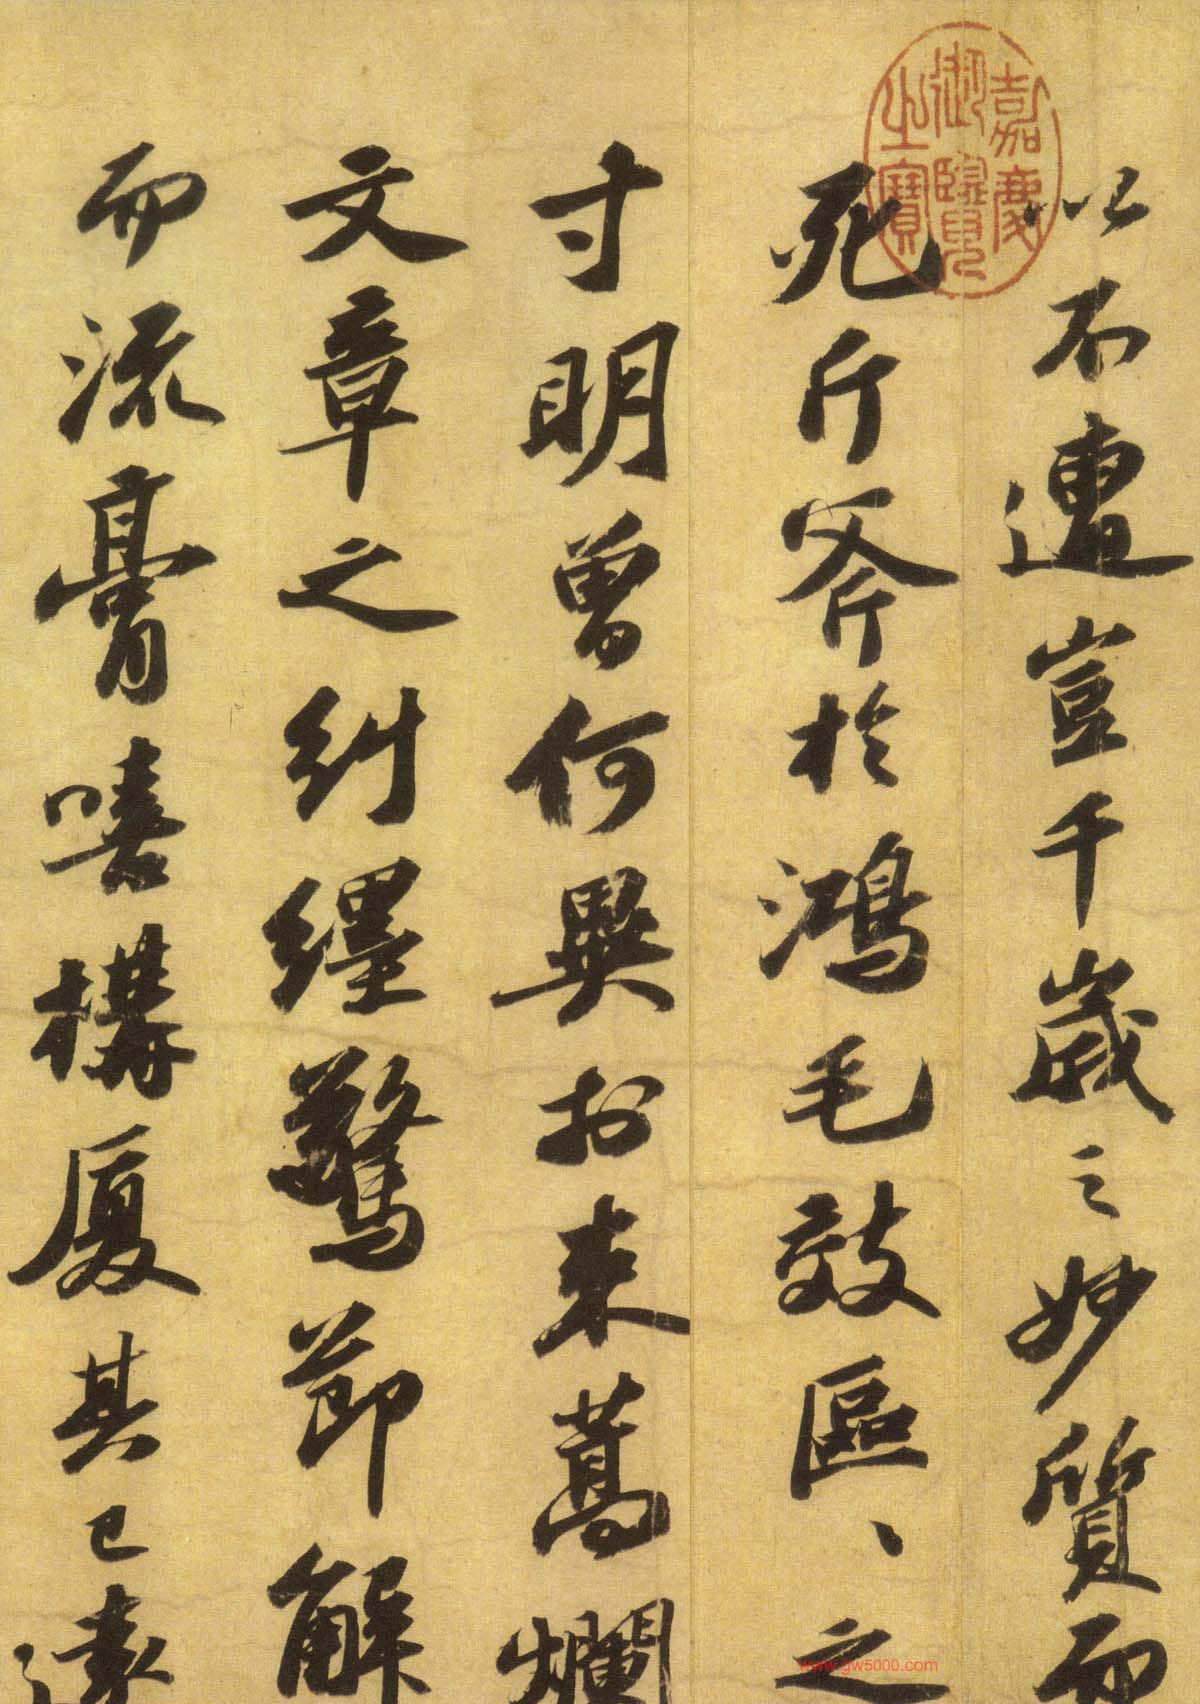 以不遭豈千歲之妙質而
死斤斧於鴻毛效區々之
寸明曾何異於束蒿爛
文章之糾纆驚節解
而流膏嘻構厦其已遠
嘉慶御覽之寶
www.gw5000.com